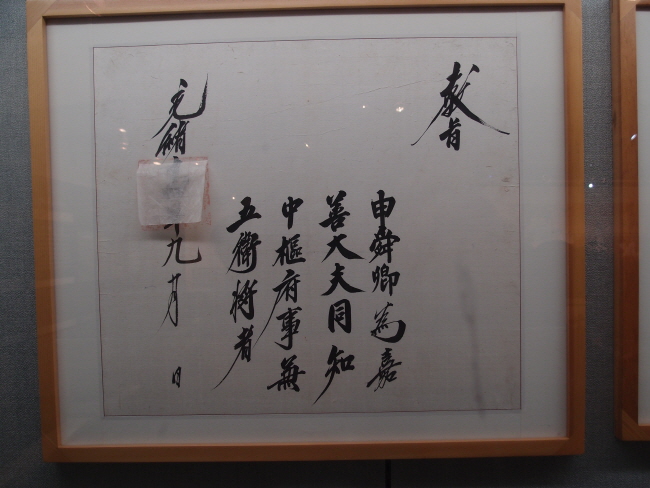 敎旨
申舜卿為嘉
善大夫同知
中樞府事兼
五衛將者
光緒年九月 日